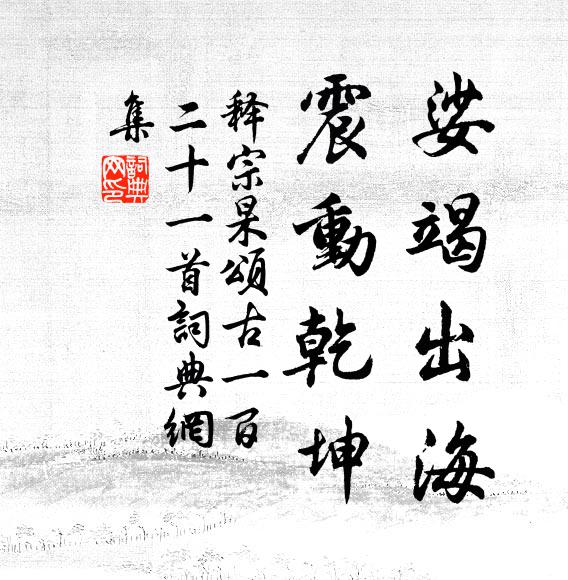 娑竭出海
震動乾坤
释宗杲頌古一百
二十一首詞典網
集
詞典
网印